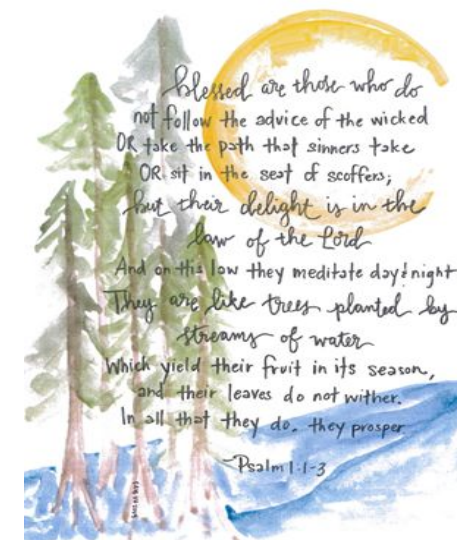 blessed are those who do
not follow the advice of the wicked
OR take the path that sinners take
OR sit in the seat of scoffers;
but their delight is in the
law of the Lord
And on His law they meditate day & night
They are like trees planted by
streams of water
Which yield their fruit in its season,
and their leaves do not wither.
In all that they do, they prosper
-Psalm 1:1-3